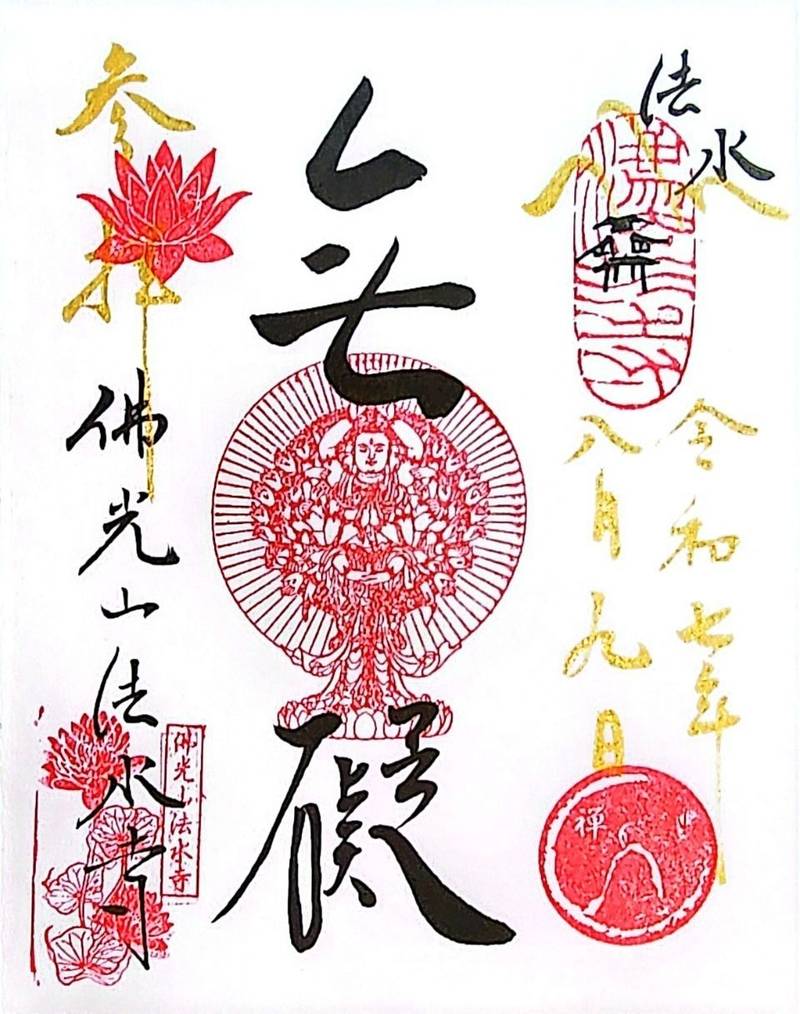 法水
令和七年
八月九日
禅
無礙
参拝
佛光山法水寺
佛光山法水寺